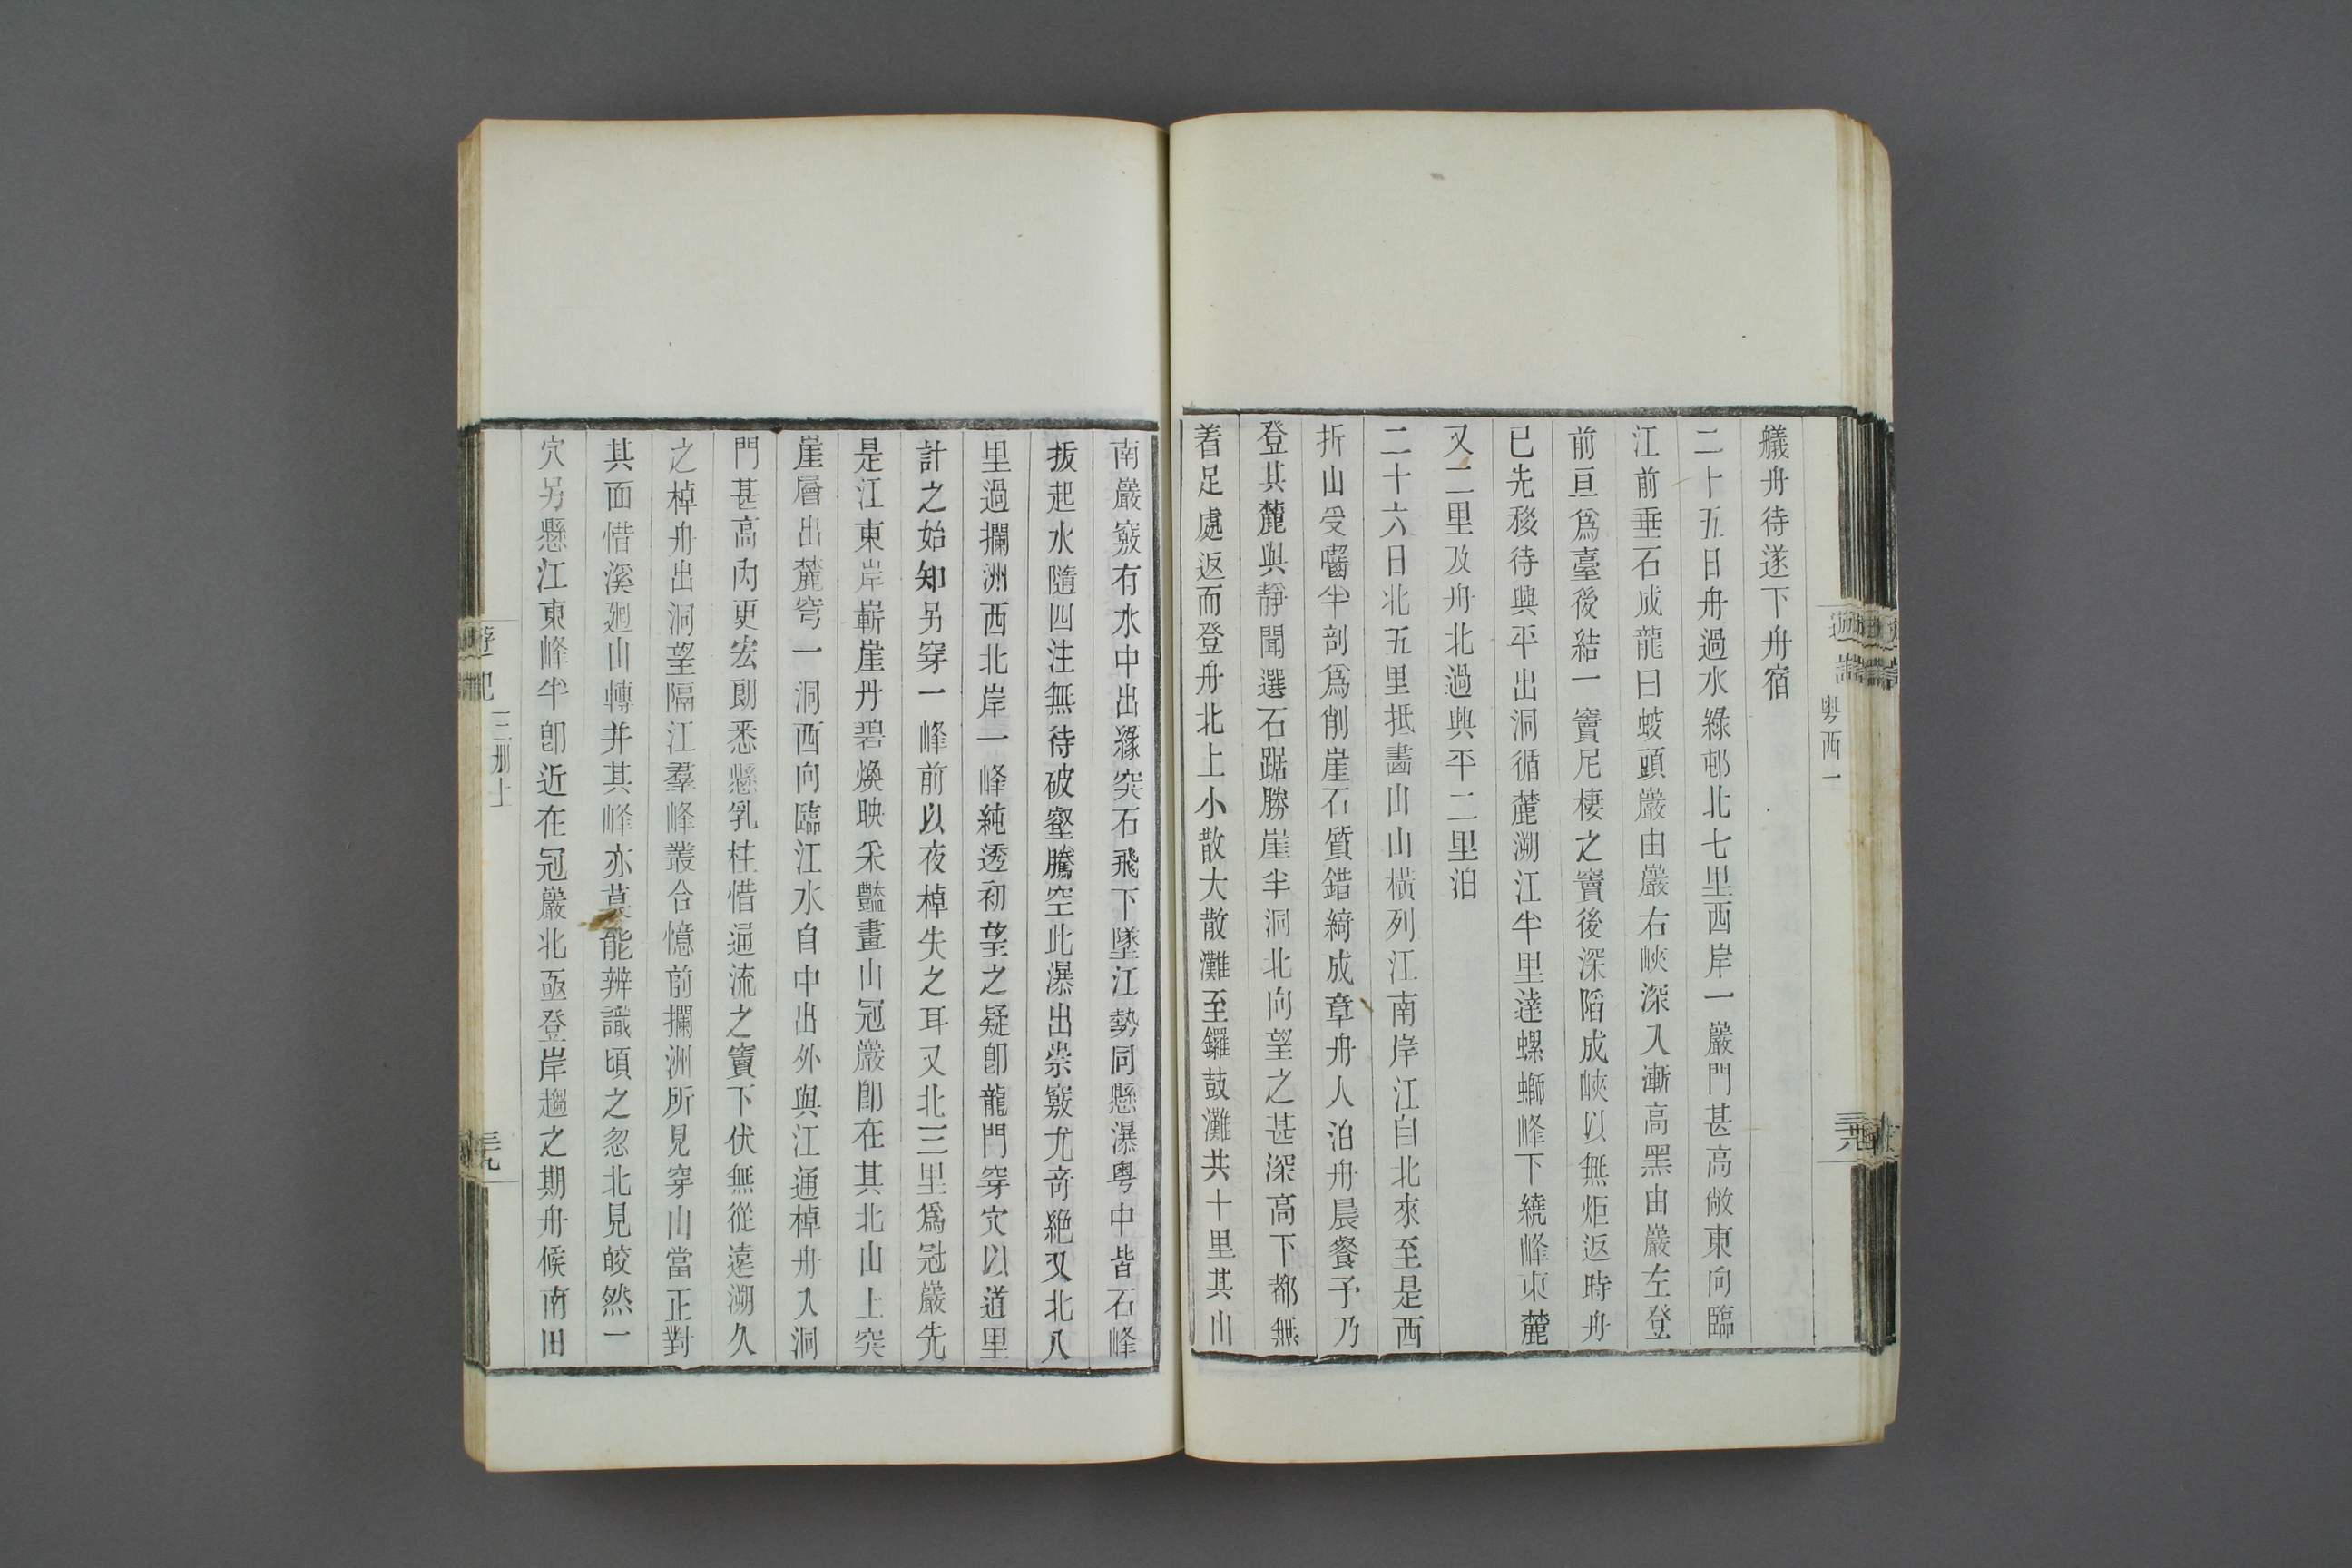 粵西一
艤舟待遂下舟宿
二十五日舟過水綠邨北七里西岸一巖門甚高敞東向臨
江前垂石成龍曰蛟頭巖由巖右峽深入漸高黑由巖左登
前亘爲臺後結一竇尼棲之竇後深陷成峽以無炬返時舟
已先移待興平出洞循麓溯江半里達螺螄峰下繞峰東麓
又二里及舟北過興平二里泊
二十六日北五里抵畵山山橫列江南岸江自北來至是西
折山受嚙半剖爲削崖石質錯綺成章舟人泊舟晨餐予乃
登其麓與靜聞選石踞勝崖半洞北向望之甚深高下都無
着足處返而登舟北上小散大散灘至鑼鼓灘共十里其山
南巖竅有水中出緣突石飛下墜江勢同懸瀑粵中皆石峰
拔起水隨四注無待破壑騰空此瀑出崇竅尤奇絕又北八
里過攔洲西北岸一峰純透初望之疑卽龍門穿穴以道里
計之始知另穿一峰前以夜棹失之耳又北三里爲冠巖先
是江東岸嶄崖丹碧煥映采豔畫山冠巖卽在其北山上突
崖層出麓穹一洞西向臨江水自中出外與江通棹舟入洞
門甚高內更宏朗悉懸乳柱惜通流之竇下伏無從遠溯久
之棹舟出洞望隔江羣峰叢合憶前攔洲所見穿山當正對
其面惜溪廻山轉并其峰亦莫能辨識頃之忽北見皎然一
穴另懸江東峰半卽近在冠巖北亟登岸趨之期舟候南田
遊記
三册上